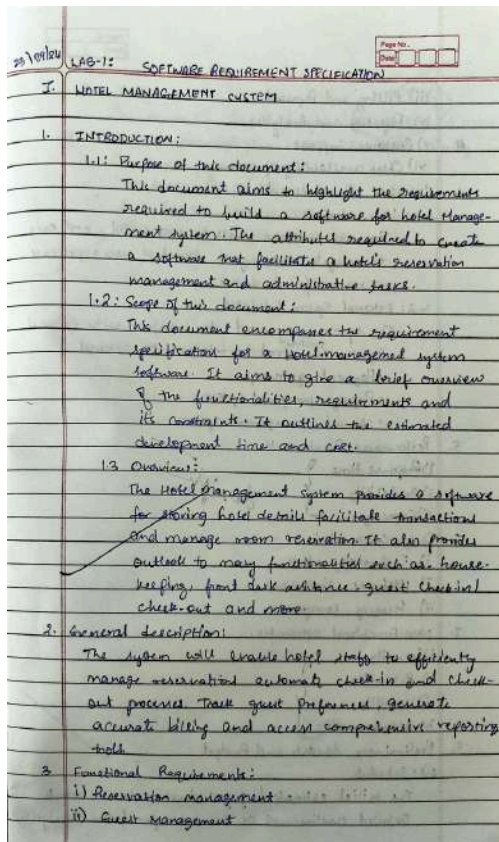 Page No.
Date
25/09/24 LAB-1: SOFTWARE REQUIREMENT SPECIFICATION
I. HOTEL MANAGEMENT SYSTEM
1. INTRODUCTION:
1.1: Purpose of this document:
This document aims to highlight the requirements
required to build a software for hotel Manage-
ment system. The attributes required to create
a software that facilitate a hotel's reservation
management and administrative tasks.
1.2: Scope of this document:
This document encompasses the requirement
specification for a Hotel management system
software. It aims to give a brief overview
of the functionalities, requirements and
its constraints. It outlines the estimated
development time and cost.
1.3 Overview:
The Hotel Management System provides a software
for storing hotel details facilitate transactions
and manage room reservation. It also provides
outlook to many functionalities such as. house-
keeping, front desk assistance, guest check-in/
check-out and more.
2. General description:
The system will enable hotel staff to efficiently
manage reservations automate check-in and check-
out processes. Track guest preferences, generate
accurate billing and access comprehensive reporting
tools.
3. Functional Requirements:
i) Reservation management
ii) Guest Management